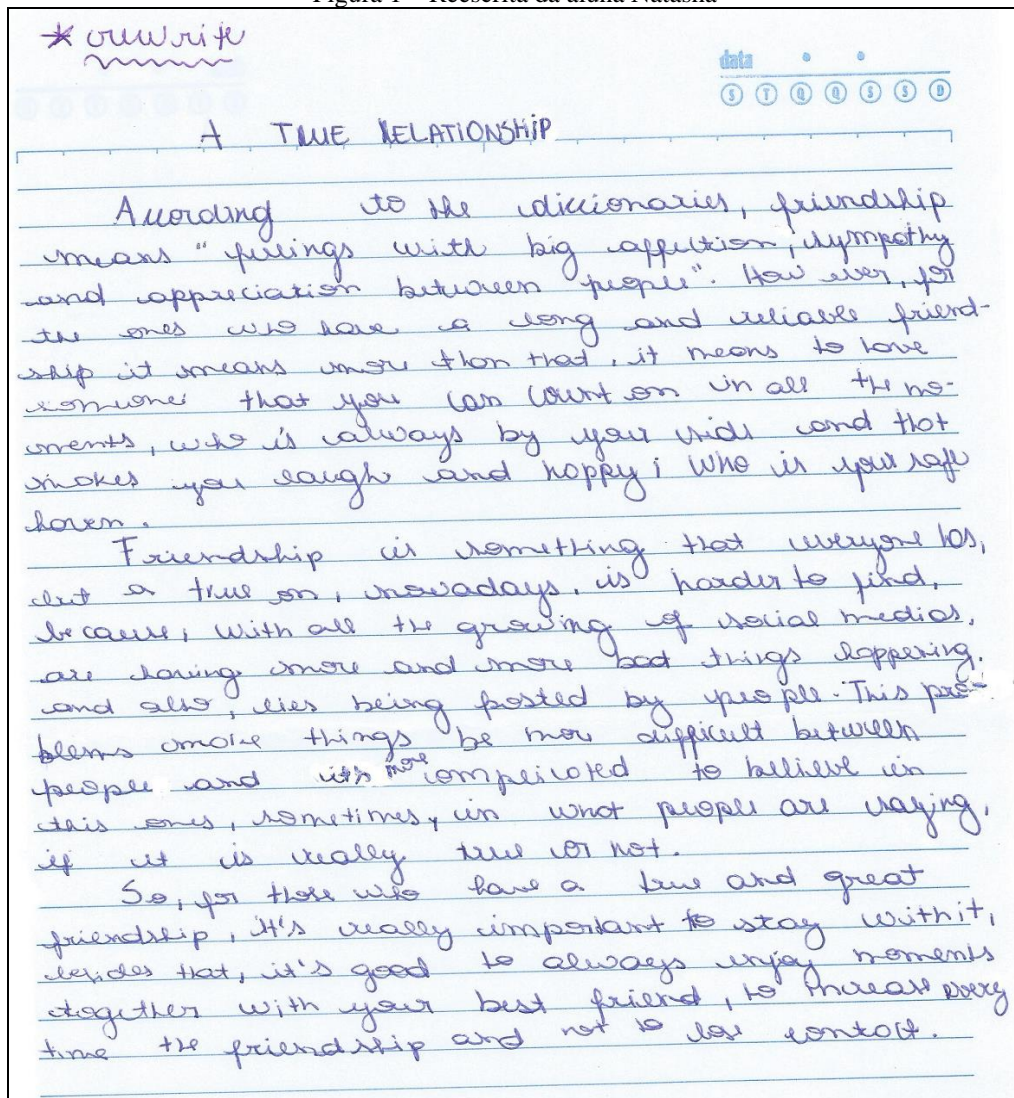 Figura 1 – Reescrita da aluna Natasha
* rewrite
data
S T Q Q S S D
A TRUE RELATIONSHIP
According to the diccionaries, friendship
means "feelings with big affection, sympathy
and appreciation between people". How ever, for
the ones who have a long and reliable friend-
ship it means more than that, it means to love
someone that you can count on in all the mo-
ments, who is always by your side and that
makes you laugh and happy; who is your safe
haven.
Friendship is something that everyone has,
but a true on, nowadays, is harder to find,
because, with all the growing of social medias,
are having more and more bad things happening,
and also, lies being posted by people. This pro-
blems make things be more difficult between
people and more complicated to bellieve in
this ones, sometimes, in what people are saying,
if it is really true or not.
So, for those who have a true and great
friendship, it's really important to stay with it,
besides that, it's good to always enjoy moments
together with your best friend, to increase every
time the friendship and not to lose contact.